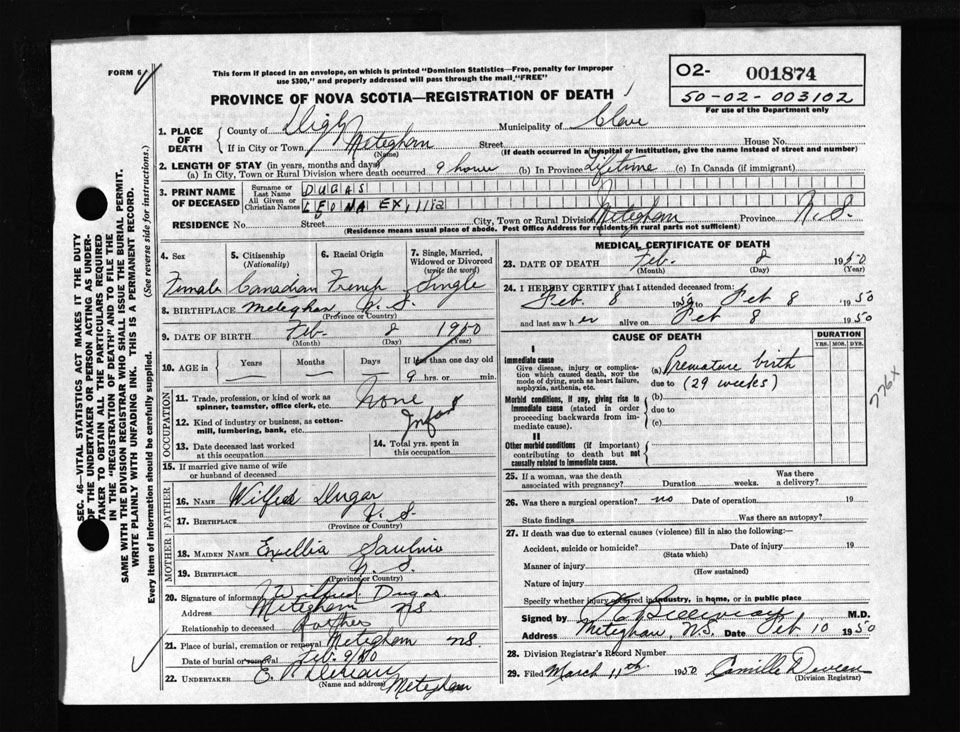 FORM 6
This form if placed in an envelope, on which is printed "Dominion Statistics—Free, penalty for improper
use $300," and properly addressed will pass through the mail, "FREE"
O2- 001874
50-02-003102
For use of the Department only
PROVINCE OF NOVA SCOTIA—REGISTRATION OF DEATH
1. PLACE OF DEATH
County of Digby Municipality of Clare
If in City or Town Meteghan Street House No.
(Name) (If death occurred in a hospital or institution, give the name instead of street and number)
2. LENGTH OF STAY (in years, months and days)
(a) In City, Town or Rural Division where death occurred 9 hours (b) In Province Lifetime (c) In Canada (if immigrant)
3. PRINT NAME OF DECEASED
Surname or Last Name DUGAS
All Given or Christian Names LEONA
RESIDENCE No. Street City, Town or Rural Division Meteghan Province N. S.
(Residence means usual place of abode. Post Office Address for residents in rural parts not sufficient)
4. Sex 5. Citizenship (Nationality) 6. Racial Origin 7. Single, Married, Widowed or Divorced (write the word)
Female Canadian French Single
8. BIRTHPLACE Meteghan N. S.
(Province or Country)
9. DATE OF BIRTH Feb. 8 1950
(Month) (Day) (Year)
10. AGE in Years Months Days If less than one day old
9 hrs. or min.
OCCUPATION
11. Trade, profession, or kind of work as spinner, teamster, office clerk, etc. None
12. Kind of industry or business, as cotton-mill, lumbering, bank, etc. Infant
13. Date deceased last worked at this occupation
14. Total yrs. spent in this occupation
15. If married give name of wife or husband of deceased
FATHER
16. NAME Wilfred Dugas
17. BIRTHPLACE N. S.
(Province or Country)
MOTHER
18. MAIDEN NAME Saulnier
19. BIRTHPLACE N. S.
(Province or Country)
20. Signature of informant Wilfred Dugas
Address Meteghan NS
Relationship to deceased Father
21. Place of burial, cremation or removal Meteghan NS.
Date of burial or removal Feb. 9/50
22. UNDERTAKER E.
(Name and address) Meteghan
MEDICAL CERTIFICATE OF DEATH
23. DATE OF DEATH Feb. 8 1950
(Month) (Day) (Year)
24. I HEREBY CERTIFY that I attended deceased from:
Feb 8 1950 to Feb 8 1950
and last saw her alive on Feb 8 1950
CAUSE OF DEATH DURATION
YRS. MOS. DYS.
I
Immediate cause
Give disease, injury or complication which caused death, NOT the mode of dying, such as heart failure, asphyxia, asthenia, etc.
(a) Premature birth
due to (29 weeks)
Morbid conditions, if any, giving rise to immediate cause (stated in order proceeding backwards from immediate cause).
(b)
due to
(c)
II
Other morbid conditions (if important) contributing to death but not causally related to immediate cause.
776x
25. If a woman, was the death associated with pregnancy? Duration weeks. Was there a delivery?
26. Was there a surgical operation? no Date of operation 19
State findings Was there an autopsy?
27. If death was due to external causes (violence) fill in also the following:
Accident, suicide or homicide? Date of injury 19
(State which)
Manner of injury
(How sustained)
Nature of injury
Specify whether injury occurred in industry, in home, or in public place
Signed by M.D.
Address Meteghan, N.S. Date Feb 10 1950
28. Division Registrar's Record Number
29. Filed March 11th 1950 Camille
(Division Registrar)
SEC. 46—VITAL STATISTICS ACT MAKES IT THE DUTY
OF THE UNDERTAKER OR PERSON ACTING AS UNDER-
TAKER TO OBTAIN ALL THE PARTICULARS REQUIRED
IN THE "REGISTRATION OF DEATH" AND TO FILE THE
SAME WITH THE DIVISION REGISTRAR WHO SHALL ISSUE THE BURIAL PERMIT.
WRITE PLAINLY WITH UNFADING INK. THIS IS A PERMANENT RECORD.
Every item of information should be carefully supplied. (See reverse side for instructions.)